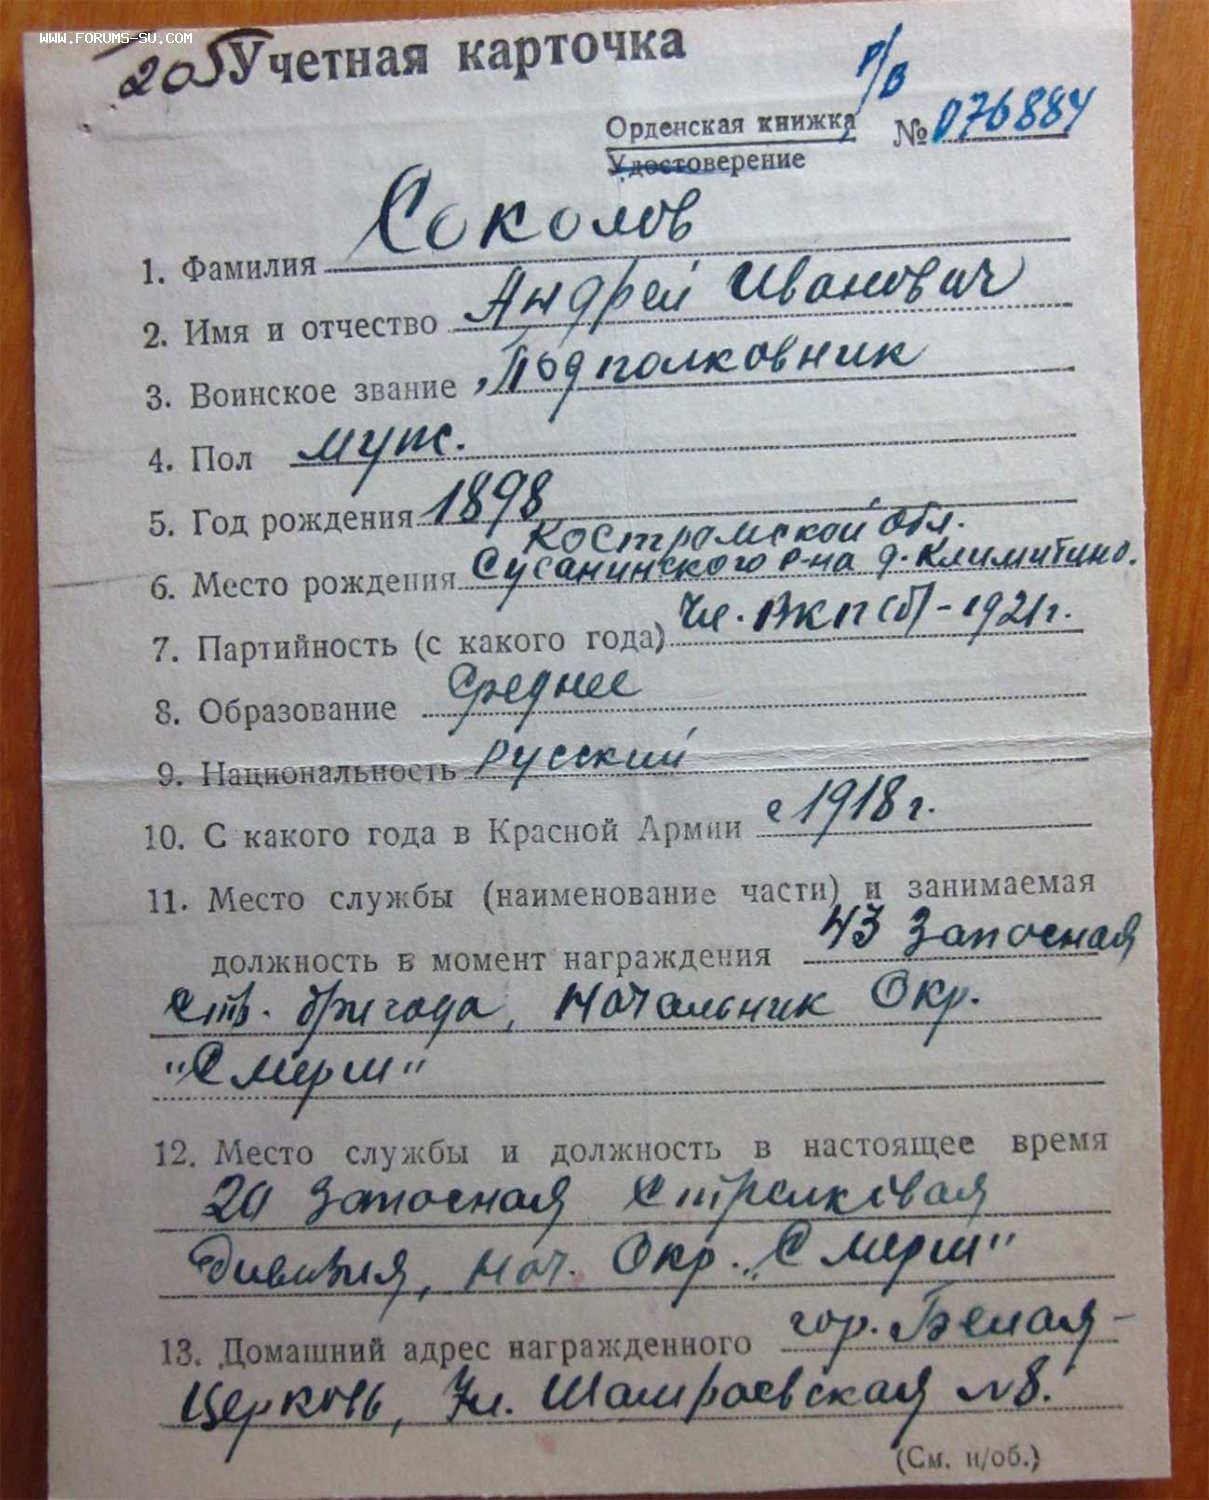 WWW.FORUMS-SU.COM
205 Учетная карточка
Р/В
Орденская книжка № 076884
Удостоверение
1. Фамилия Соколов
2. Имя и отчество Андрей Иванович
3. Воинское звание Подполковник
4. Пол муж.
5. Год рождения 1898
Костромской обл.
6. Место рождения Сусанинского р-на д. Климитино.
7. Партийность (с какого года) Чл. ВКП(б) - 1921 г.
8. Образование Среднее
9. Национальность русский
10. С какого года в Красной Армии с 1918 г.
11. Место службы (наименование части) и занимаемая
должность в момент награждения 43 Запасная
стр. бригада, Начальник Окр.
"Смерш"
12. Место службы и должность в настоящее время
20 Запасная Стрелковая
дивизия, нач. Окр. "Смерш"
13. Домашний адрес награжденного гор. Белая-
Церковь, Ул. Шамраевская № 8.
(См. н/об.)